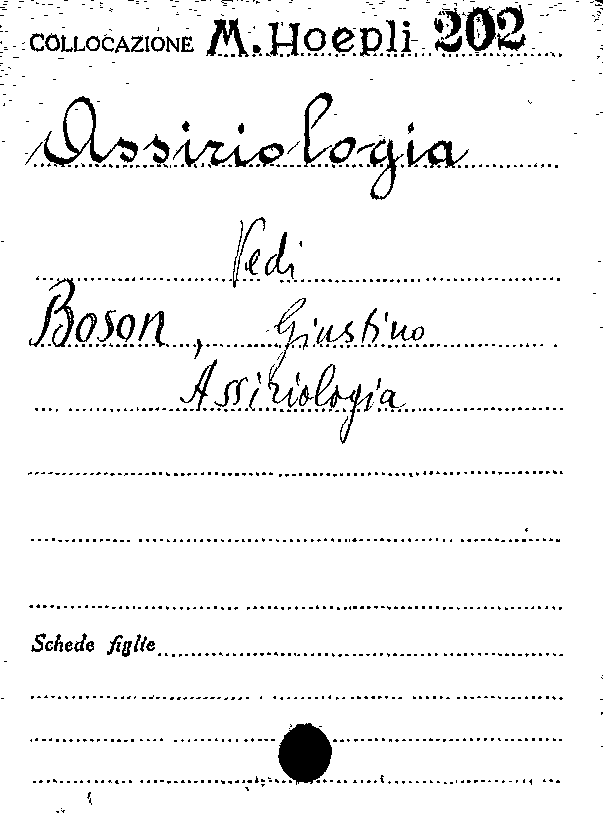 COLLOCAZIONE M. Hoepli 202
Assiriologia
Vedi
Boson, Giustino
Assiriologia
Schede figlie